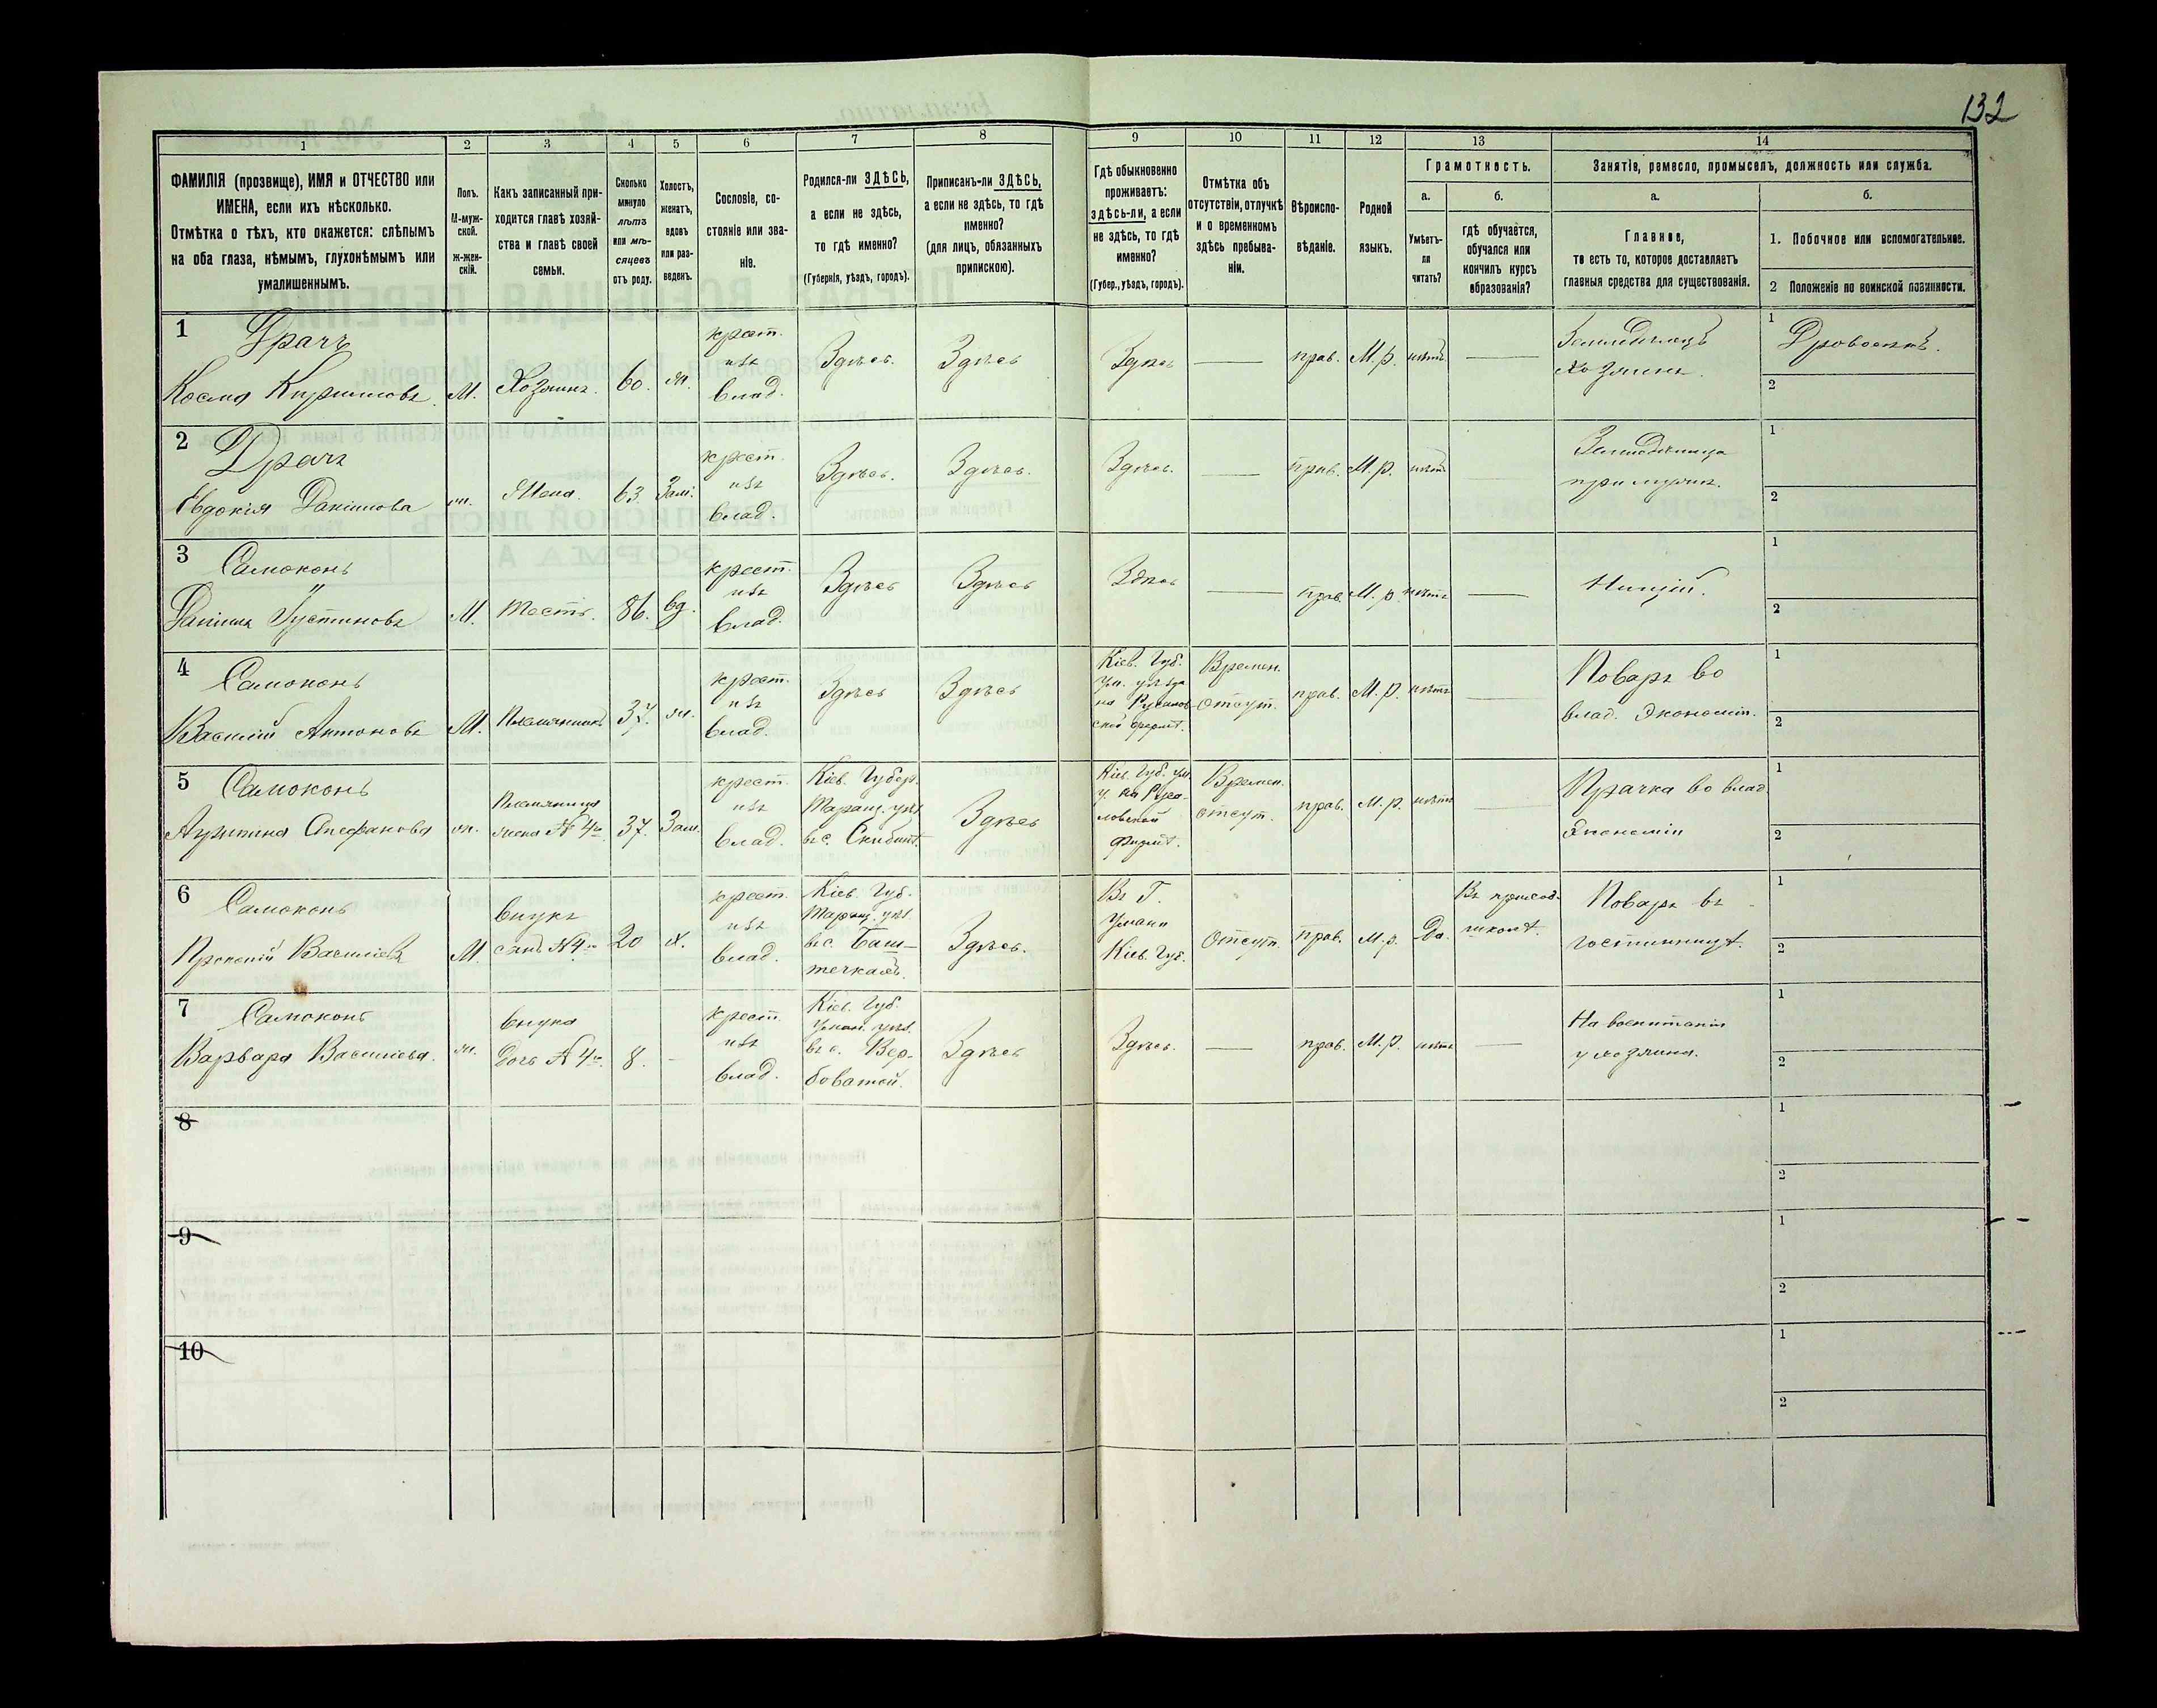 132
1
2
3
4
5
6
7
8
9
10
11
12
13
14
ФАМИЛІЯ (прозвище), ИМЯ и ОТЧЕСТВО или
ИМЕНА, если ихъ нѣсколько.
Отмѣтка о тѣхъ, кто окажется: слѣпымъ
на оба глаза, нѣмымъ, глухонѣмымъ или
умалишеннымъ.
Полъ.
М-муж-
ской.
Ж-жен-
скій.
Какъ записанный при-
ходится главѣ хозяй-
ства и главѣ своей
семьи.
Сколько
минуло
лѣтъ
или мѣ-
сяцевъ
отъ роду.
Холостъ,
женатъ,
вдовъ
или раз-
веденъ.
Сословіе, со-
стояніе или зва-
ніе.
Родился-ли ЗДѢСЬ,
а если не здѣсь,
то гдѣ именно?
(Губернія, уѣздъ, городъ).
Приписанъ-ли ЗДѢСЬ,
а если не здѣсь, то гдѣ
именно?
(для лицъ, обязанныхъ
припискою).
Гдѣ обыкновенно
проживаетъ:
здѣсь-ли, а если
не здѣсь, то гдѣ
именно?
(Губер., уѣздъ, городъ).
Отмѣтка объ
отсутствіи, отлучкѣ
и о временномъ
здѣсь пребыва-
ніи.
Вѣроиспо-
вѣданіе.
Родной
языкъ.
Грамотность.
а.
Умѣетъ-
ли
читать?
б.
гдѣ обучается,
обучался или
кончилъ курсъ
образованія?
Занятіе, ремесло, промыселъ, должность или служба.
а.
Главное,
то есть то, которое доставляетъ
главныя средства для существованія.
б.
1. Побочное или вспомогательное.
2 Положеніе по воинской повинности.
1
Драчъ
Косма Кириловъ
М.
Хозяинъ.
60.
ж.
крест.
изъ
влад.
Здѣсь.
Здѣсь
Здѣсь
прав.
М. р.
нѣтъ
Земледѣлецъ
хозяинъ.
1
Дровосѣкъ.
2
2
Драчъ
Евдокія Даніилова
ж.
Жена.
63.
Зам.
крест.
изъ
влад.
Здѣсь.
Здѣсь.
Здѣсь.
прав.
М. р.
нѣтъ
Земледѣлица
при мужѣ.
1
2
3
Самоконь
Даніилъ Іустиновъ
М.
Тесть.
86.
вд.
крест.
изъ
влад.
Здѣсь
Здѣсь
Здѣсь
прав.
М. р.
нѣтъ
Нищій.
1
2
4
Самоконь
Василій Антоновъ
М.
Племянникъ
37.
ж.
крест.
изъ
влад.
Здѣсь
Здѣсь
Кіев. Губ.
Ум. уѣзда
Времен.
отсут.
прав.
М. р.
нѣтъ
Поваръ во
влад. Экономіи.
1
2
5
Самоконь
Агрипина Стефанова
ж.
Племянница
жена № 4го
37.
Зам.
крест.
изъ
влад.
Кіев. Губер.
Таращ. уѣз.
въ с. Скибинѣ.
Здѣсь
Кіев. Губ. Ум.
Времен.
отсут.
прав.
М. р.
нѣтъ
Прачка во влад.
Экономіи
1
2
6
Самоконь
Василіевъ
М.
внукъ
сынъ № 4го
20
х.
крест.
изъ
влад.
Кіев. Губ.
Таращ. уѣз.
въ с. Баш-
течкахъ.
Здѣсь.
Въ Г.
Умани
Кіев. Губ.
Отсут.
прав.
М. р.
Да.
Въ приход.
школѣ.
Поваръ въ
гостинницѣ.
1
2
7
Самоконь
Варвара Василіева.
ж.
внука
дочь № 4го.
8.
крест.
изъ
влад.
Кіев. Губ.
Уман. уѣз.
въ с. Вер-
боватой.
Здѣсь
Здѣсь.
прав.
М. р.
нѣтъ
На воспитаніи
у хозяина.
1
2
8
1
2
9
1
2
10
1
2